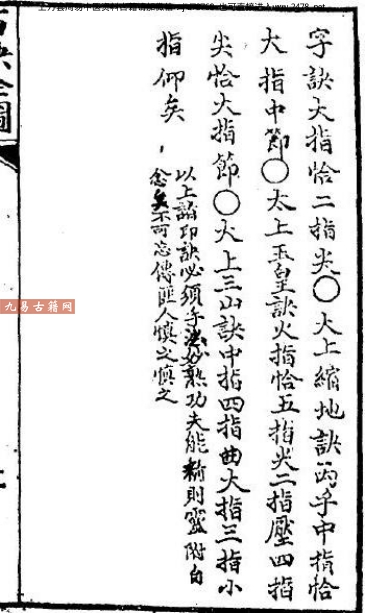 字訣大指恰二指尖〇大上縮地訣両手中指恰
大指中節〇太上玉皇訣火指恰五指尖二指壓四指
尖恰大指節〇大上三山訣中指四指曲大指三指小
指仰矣
以上諸印訣必須手法妙熟功夫能精則靈附自
念矣不可忘傳匪人慎之慎之
九易古籍网